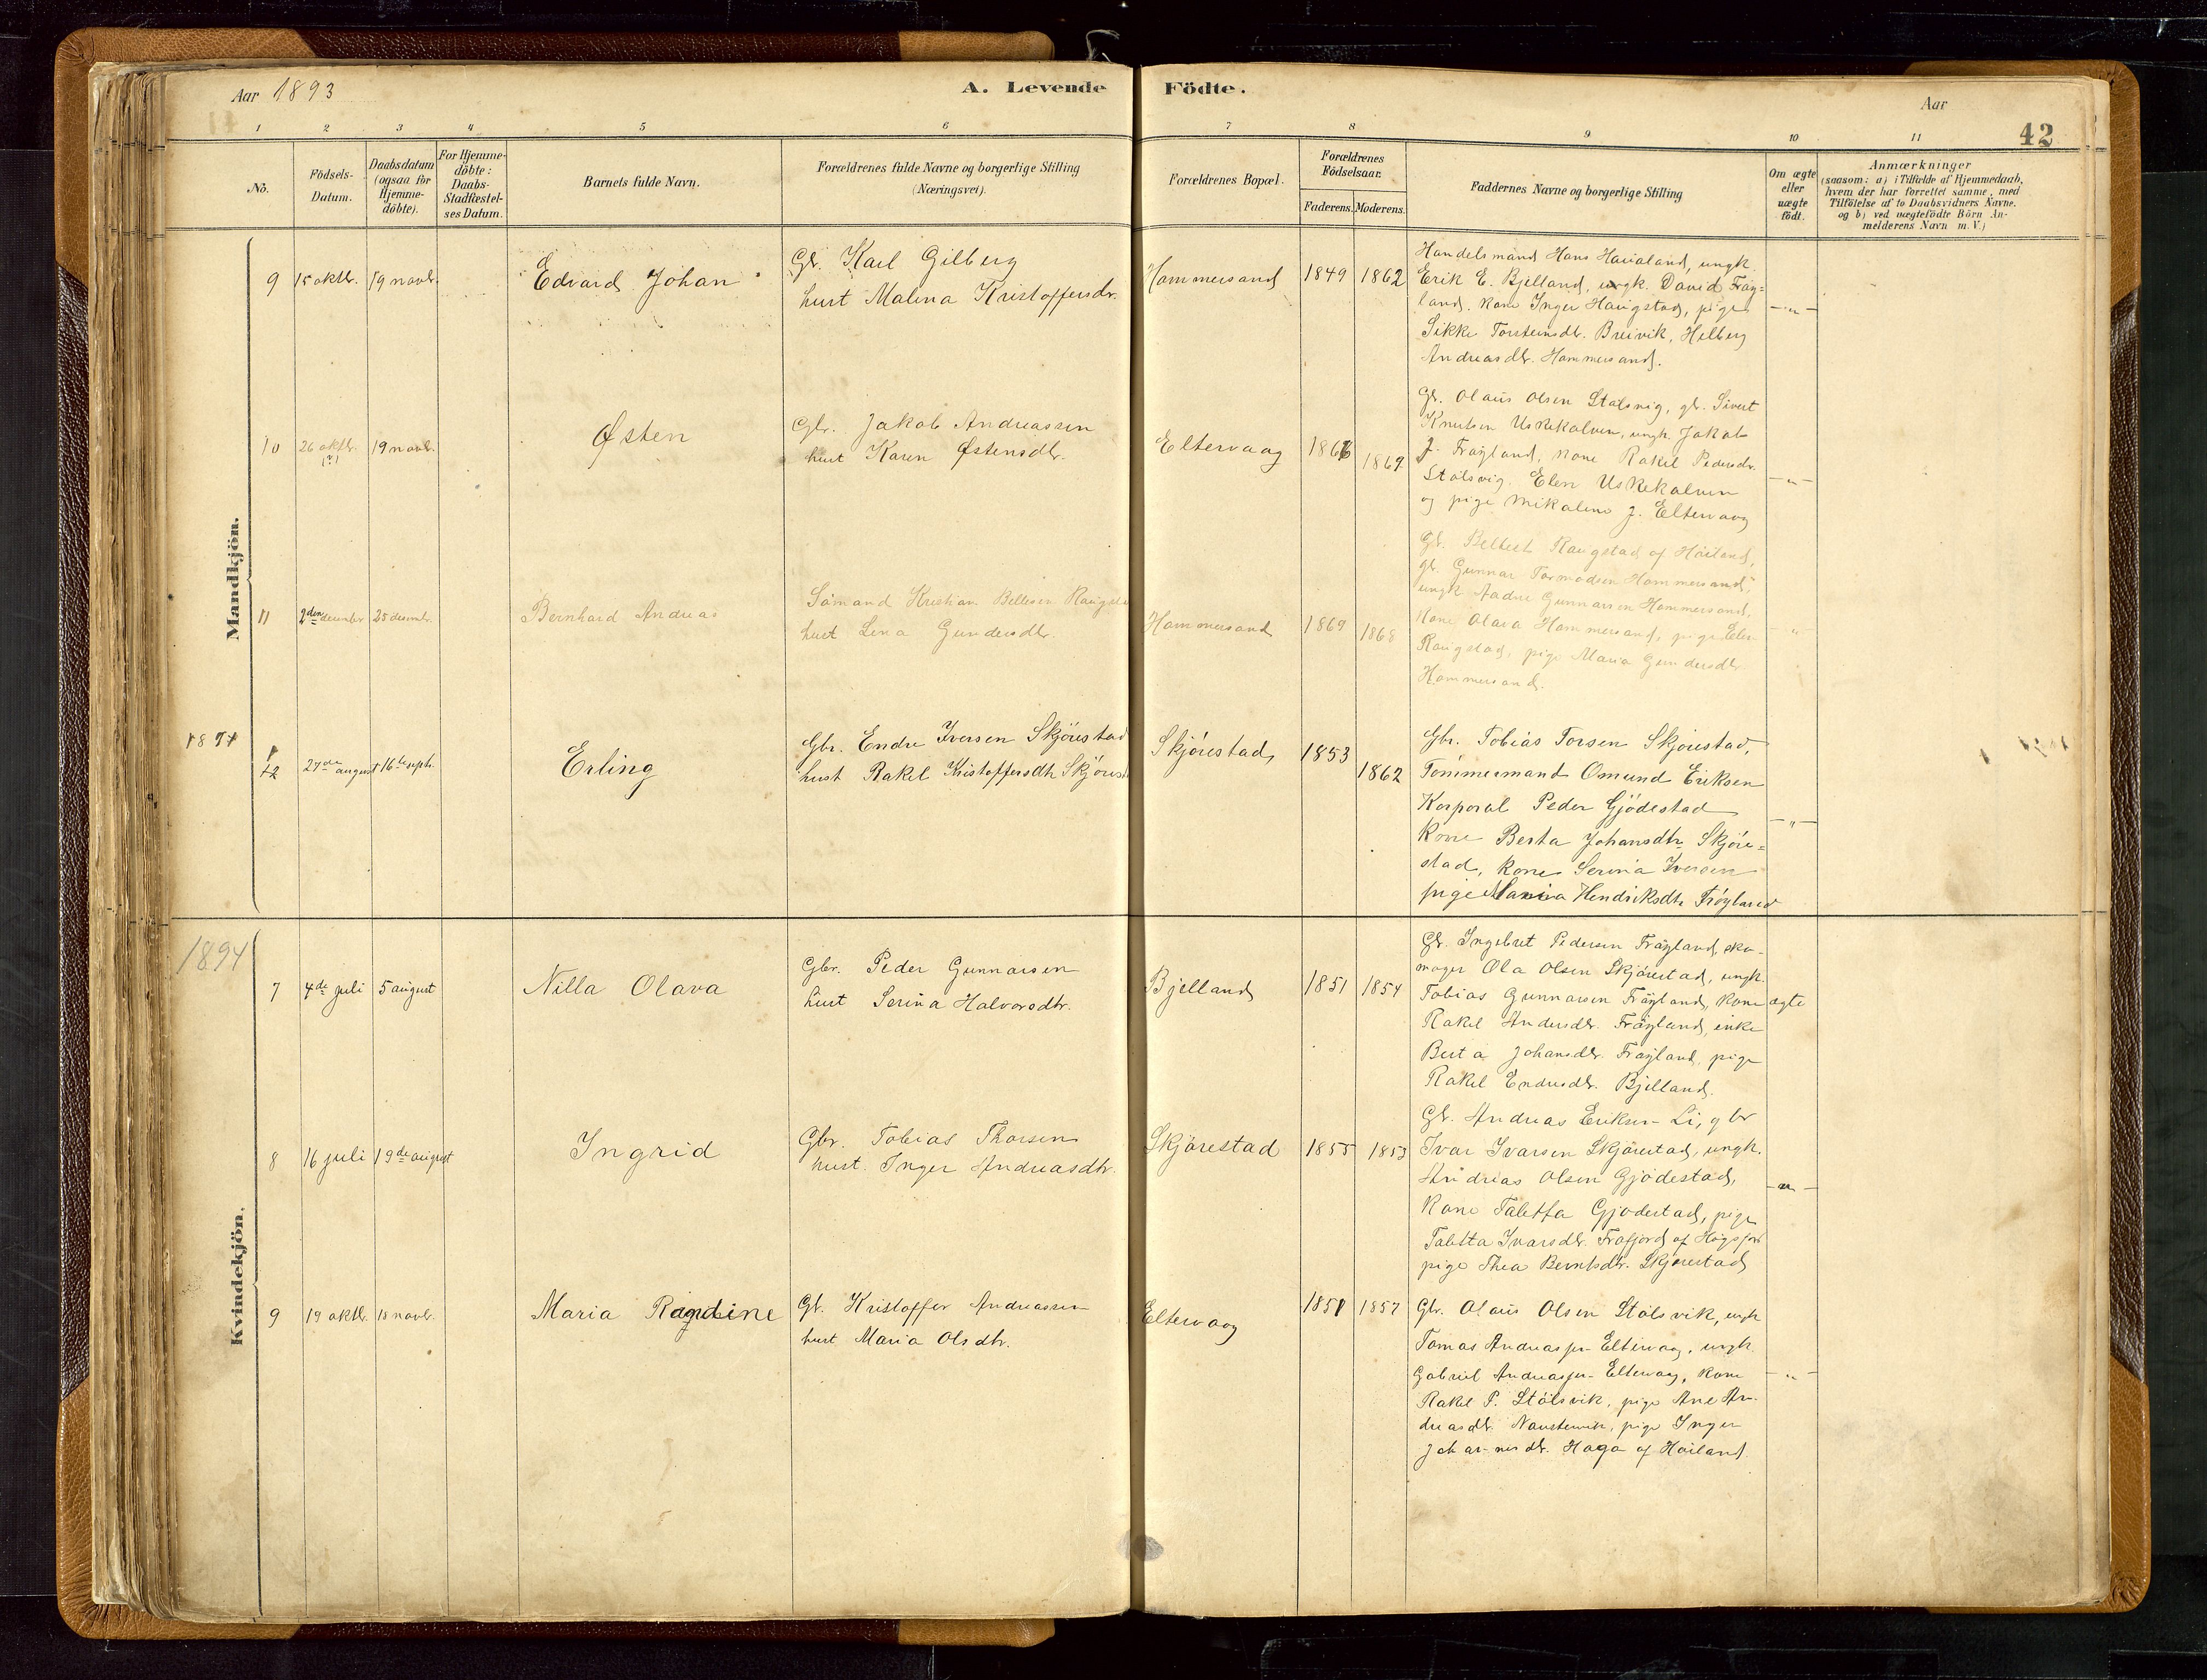 Aar 1893
A. Levende Födte.
Aar
42
1 2 3 4 5 6 7 8 9 10 11
No.
Födsels-Datum.
Daabsdatum (ogsaa for Hjemme-döbte).
For Hjemme-döbte: Daabs-Stadfæstel-ses Datum.
Barnets fulde Navn.
Forældrenes fulde Navne og borgerlige Stilling (Næringsvei).
Forældrenes Bopæl.
Forældrenes Födselsaar.
Faderens. Moderens.
Faddernes Navne og borgerlige Stilling
Om ægte eller uægte födt.
Anmærkninger
(saasom: a) i Tilfælde af Hjemmedaab,
hvem der har forrettet samme, med
Tilföielse af to Daabsvidners Navne.
og b) ved uægtefödte Börn An-
melderens Navn m. V.)
Mandkjön.
9 15 oktbr. 19 novbr. Edvard Johan
Gbr. Karl Gilberg
hust Malena Kristoffersdr.
Hommersand 1849 1862
Handelsmand Hans Haualand, ungk.
Erik E. Bjelland, ungk. David Fröy-
land, kone Inger Haugstad, pige
Sikke Torsteinsdtr. Breivik, Helberg
Andreasdtr. Hommersand.
— " —
10 26 oktbr. (?) 19 novbr. Østen
Gbr. Jakob Andreassen
hust Karen Østensdtr.
Eltervaag 1866 1869
Gbr. Olaus Olsen Stølsvig, gbr. Sivert
Knutsen Uskekalven, ungk. Jakob
J. Fröyland, kone Rakel Pedersdr.
Stølsvig, Elen Uskekalven
og pige Mikaline J. Eltervaag
— " —
11 2den december 25 decembr. Bernhard Andreas
Sømand Kristian Bellesen Raugsta
hust Lena Gundersdtr.
Hommersand 1869 1868
Gbr. Belbert Raugstad af Høiland,
gbr. Gunnar Tormodsen Hommersand,
ungk Aadne Gunnarsen Hommersand,
kone Olava Hommersand, pige Elen
Raugstad, pige Maria Gundersdtr
Hommersand.
"
1894
1
12 27de august 16de septr. Erling
Gbr. Endre Iversen Skjörestad
hust Rakel Kristoffersdtr Skjörest
Skjörestad 1853 1862
Gbr. Tobias Torsen Skjörestad,
Tömmermand Omund Eriksen
Korporal Peder Gjödestad
Kone Berta Johansdtr Skjöre-
stad, kone Serina Iversen
pige Maria Hendriksdtr Fröyland
— " —
Kvindekjön.
1894
7 4de juli 5 august Nilla Olava
Gbr. Peder Gunnarsen
hust Serina Halvorsdtr.
Bjelland 1851 1854
Gbr. Ingebret Pedersen Fröyland, sko-
mager Ola Olsen Skjörestad, ungk.
Tobias Gunnarsen Fröyland, kone
Rakel Andersdtr. Fröyland, enke
Berta Johansdtr. Fröyland, pige
Rakel Endresdtr. Bjelland.
ægte
8 16 juli 19de august Ingrid
Gbr. Tobias Thorsen
hust. Inger Andreasdtr.
Skjörestad 1855 1853
Gbr. Andreas Eriksen Li, gbr
Ivar Ivarsen Skjörestad, ungk.
Andreas Olsen Gjödestad,
Kone Taletta Gjödestad, pige
Taletta Ivarsdtr. Frafjord af Høgsfjord
pige Thea Berntsdtr. Skjörestad
— " —
9 19 oktbr. 18 novbr. Maria Ragndine
Gbr. Kristoffer Andreassen
hust Maria Olsdtr.
Eltervaag 1851 1857
Gbr. Olaus Olsen Stölsvik, ungk
Tomas Andreassen Eltervaag, ungk.
Gabriel Andreassen Eltervaag, kone
Rakel P. Stölsvik, pige Ane An-
dreasdtr. , pige Inger
Johannesdtr. Haga af Høiland
— " —